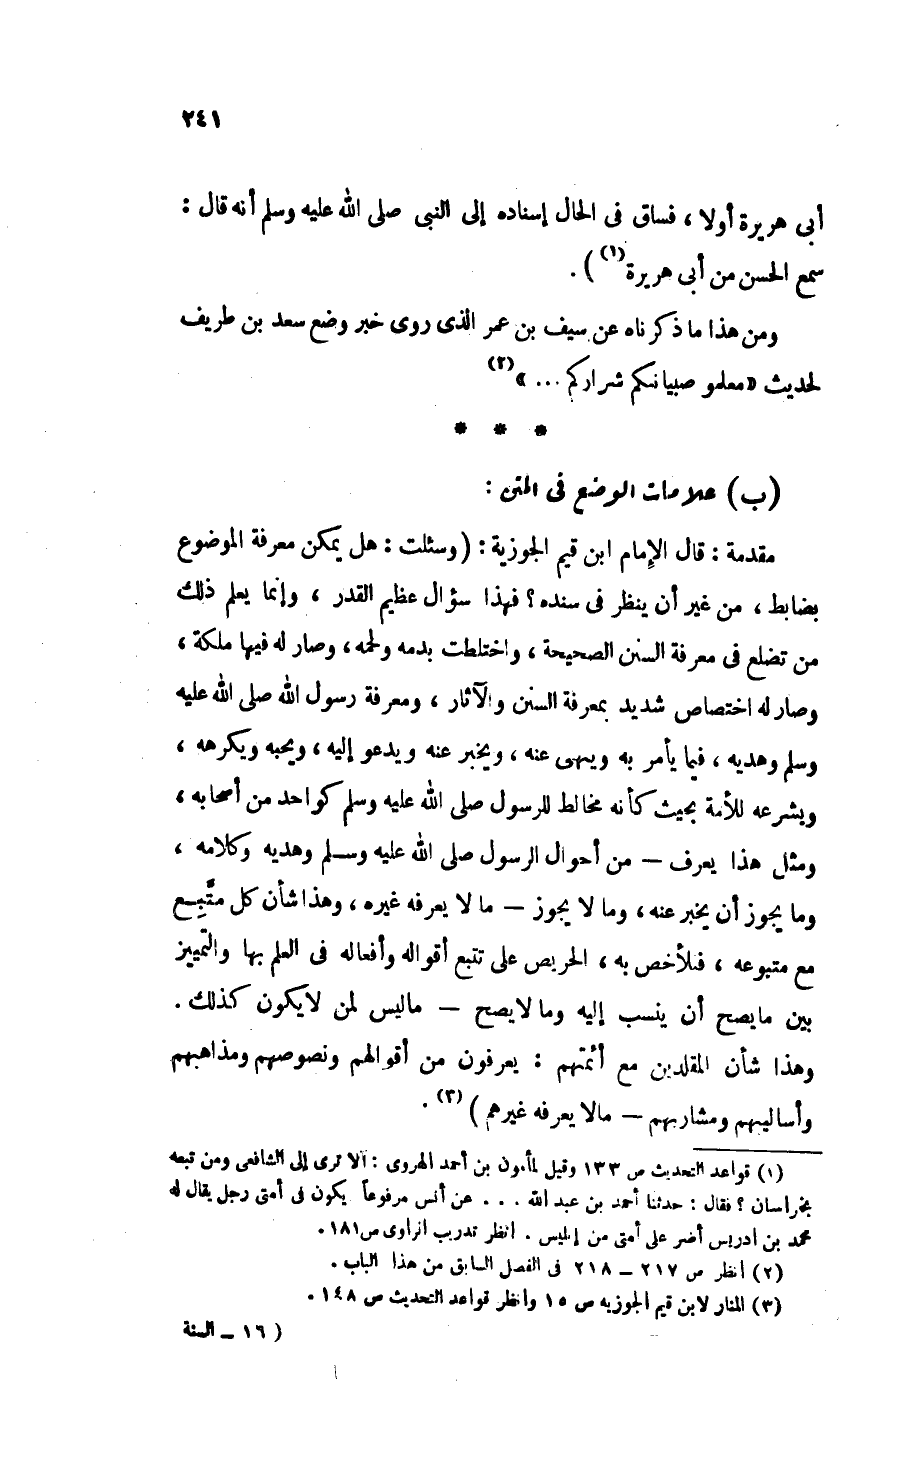 ٢٤١
أبى هريرة أولا ، فساق فى الحال إسناده إلى النبى صلى الله عليه وسلم أنه قال :
سمع الحسن من أبى هريرة(١) ) .
ومن هذا ما ذكرناه عن سيف بن عمر الذى روى خبر وضع سعد بن طريف
لحديث «معلمو صبيانكم شراركم ... »(٢)
* * *
(ب) علامات الوضع فى المتن :
مقدمة : قال الإمام ابن قيم الجوزية : ( وسئلت : هل يمكن معرفة الموضوع
بضابط ، من غير أن ينظر فى سنده ؟ فهذا سؤال عظيم القدر ، وإنما يعلم ذلك
من تضلع فى معرفة السنن الصحيحة ، واختلطت بدمه ولحمه ، وصار له فيها ملكة ،
وصار له اختصاص شديد بمعرفة السنن والآثار ، ومعرفة رسول الله صلى الله عليه
وسلم وهديه ، فيما يأمر به وينهى عنه ، ويخبر عنه ويدعو إليه ، ويحبه ويكرهه ،
ويشرعه للأمة بحيث كأنه مخالط للرسول صلى الله عليه وسلم كواحد من أصحابه ،
ومثل هذا يعرف — من أحوال الرسول صلى الله عليه وسلم وهديه وكلامه ،
وما يجوز أن يخبر عنه ، وما لا يجوز — ما لا يعرفه غيره ، وهذا شأن كل متَّبِع
مع متبوعه ، فللأخص به ، الحريص على تتبع أقواله وأفعاله فى العلم بها والتمييز
بين مايصح أن ينسب إليه وما لايصح — ماليس لمن لايكون كذلك .
وهذا شأن المقلدين مع أئمتهم : يعرفون من أقوالهم ونصوصهم ومذاهبهم
وأساليبهم ومشاربهم — مالا يعرفه غيرهم )(٣) .
(١) قواعد التحديث ص ١٣٣ وقيل لمأمون بن أحمد الهروى : ألا ترى إلى الشافعى ومن تبعه
بخراسان ؟ فقال : حدثنا أحمد بن عبد الله . . . عن أنس مرفوعاً يكون فى أمتى رجل يقال له
محمد بن ادريس أضر على أمتى من إبليس . انظر تدريب الراوى ص١٨١ .
(٢) انظر ص ٢١٧ — ٢١٨ فى الفصل السابق من هذا الباب .
(٣) المنار لابن قيم الجوزيه ص ١٥ وانظر قواعد التحديث ص ١٤٨ .
( ١٦ — السنة